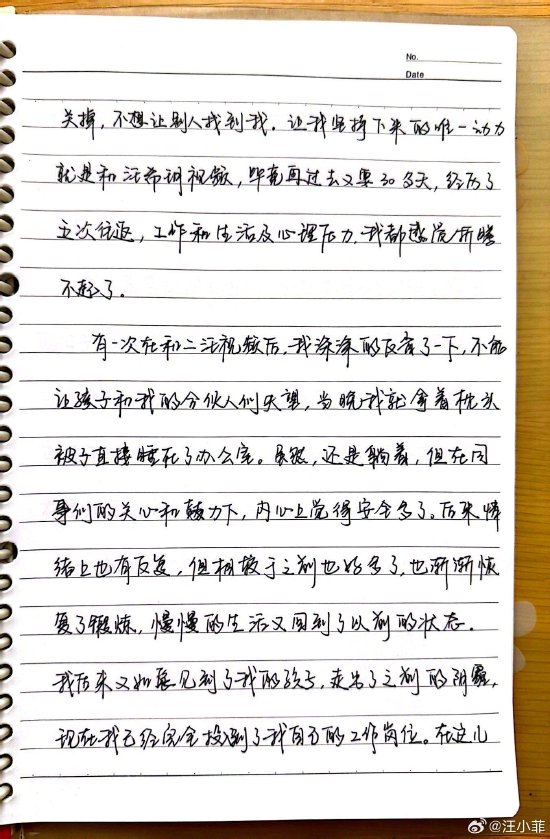 No.
Date
关掉，不想让别人找到我。让我坚持下来的唯一动力
就是和汪希玥视频，毕竟再过去又要30多天，经历了
五次往返，工作和生活及心理压力，我都感觉折腾
不起了。
有一次在和二汪视频后，我深深的反省了一下，不能
让孩子和我的合伙人们失望，当晚我就拿着枕头
被子直接睡在了办公室。虽然，还是躺着，但在同
事们的关心和鼓力下，内心上觉得安全多了。后来情
绪上也有反复，但相较于之前也好多了，也渐渐恢
复了锻炼，慢慢的生活又回到了以前的状态。
我后来又如愿见到了我的孩子，走出了之前的阴霾，
现在我已经完全投到了我自己的工作岗位。在这儿
@汪小菲